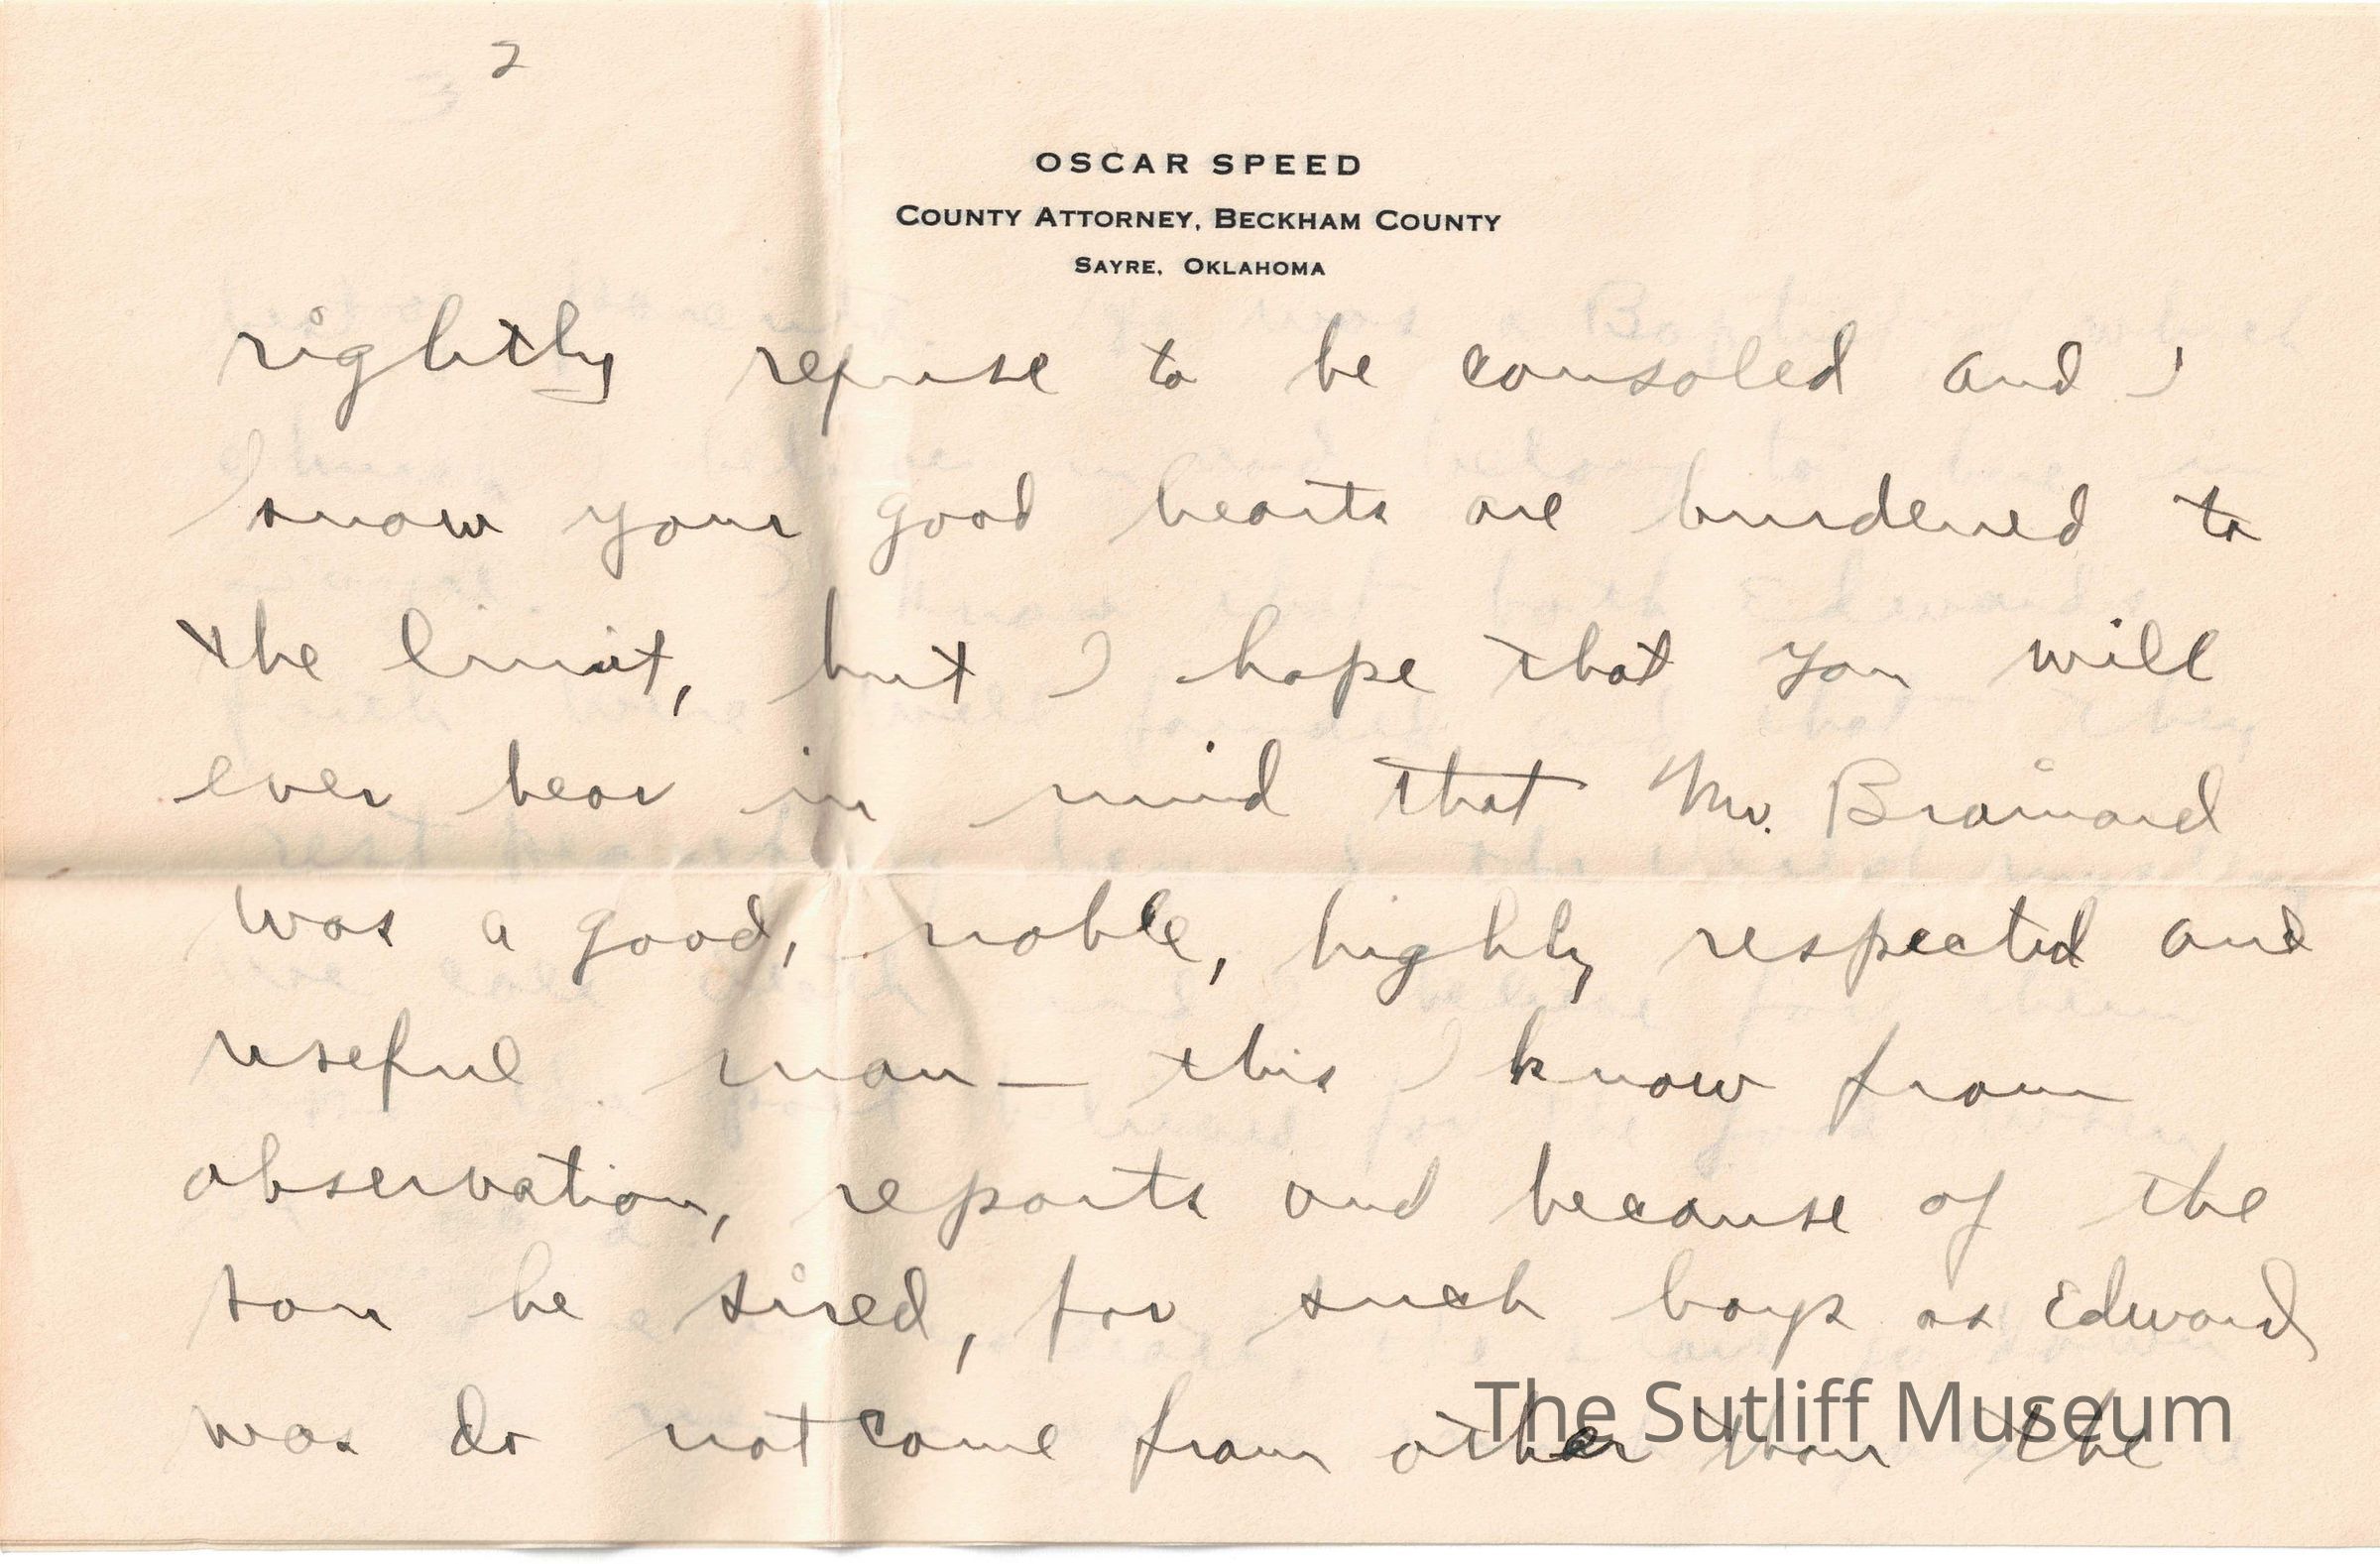 2
OSCAR SPEED
COUNTY ATTORNEY, BECKHAM COUNTY
SAYRE, OKLAHOMA
rightly refuse to be consoled and I
know your good hearts are burdened to
the limit, but I hope that you will
ever bear in mind that Mr. Brainard
was a good, noble, highly respected and
useful man — this I know from
observation, reports and because of the
son he sired, for such boys as Edward
was do not come from other than the
The Sutliff Museum